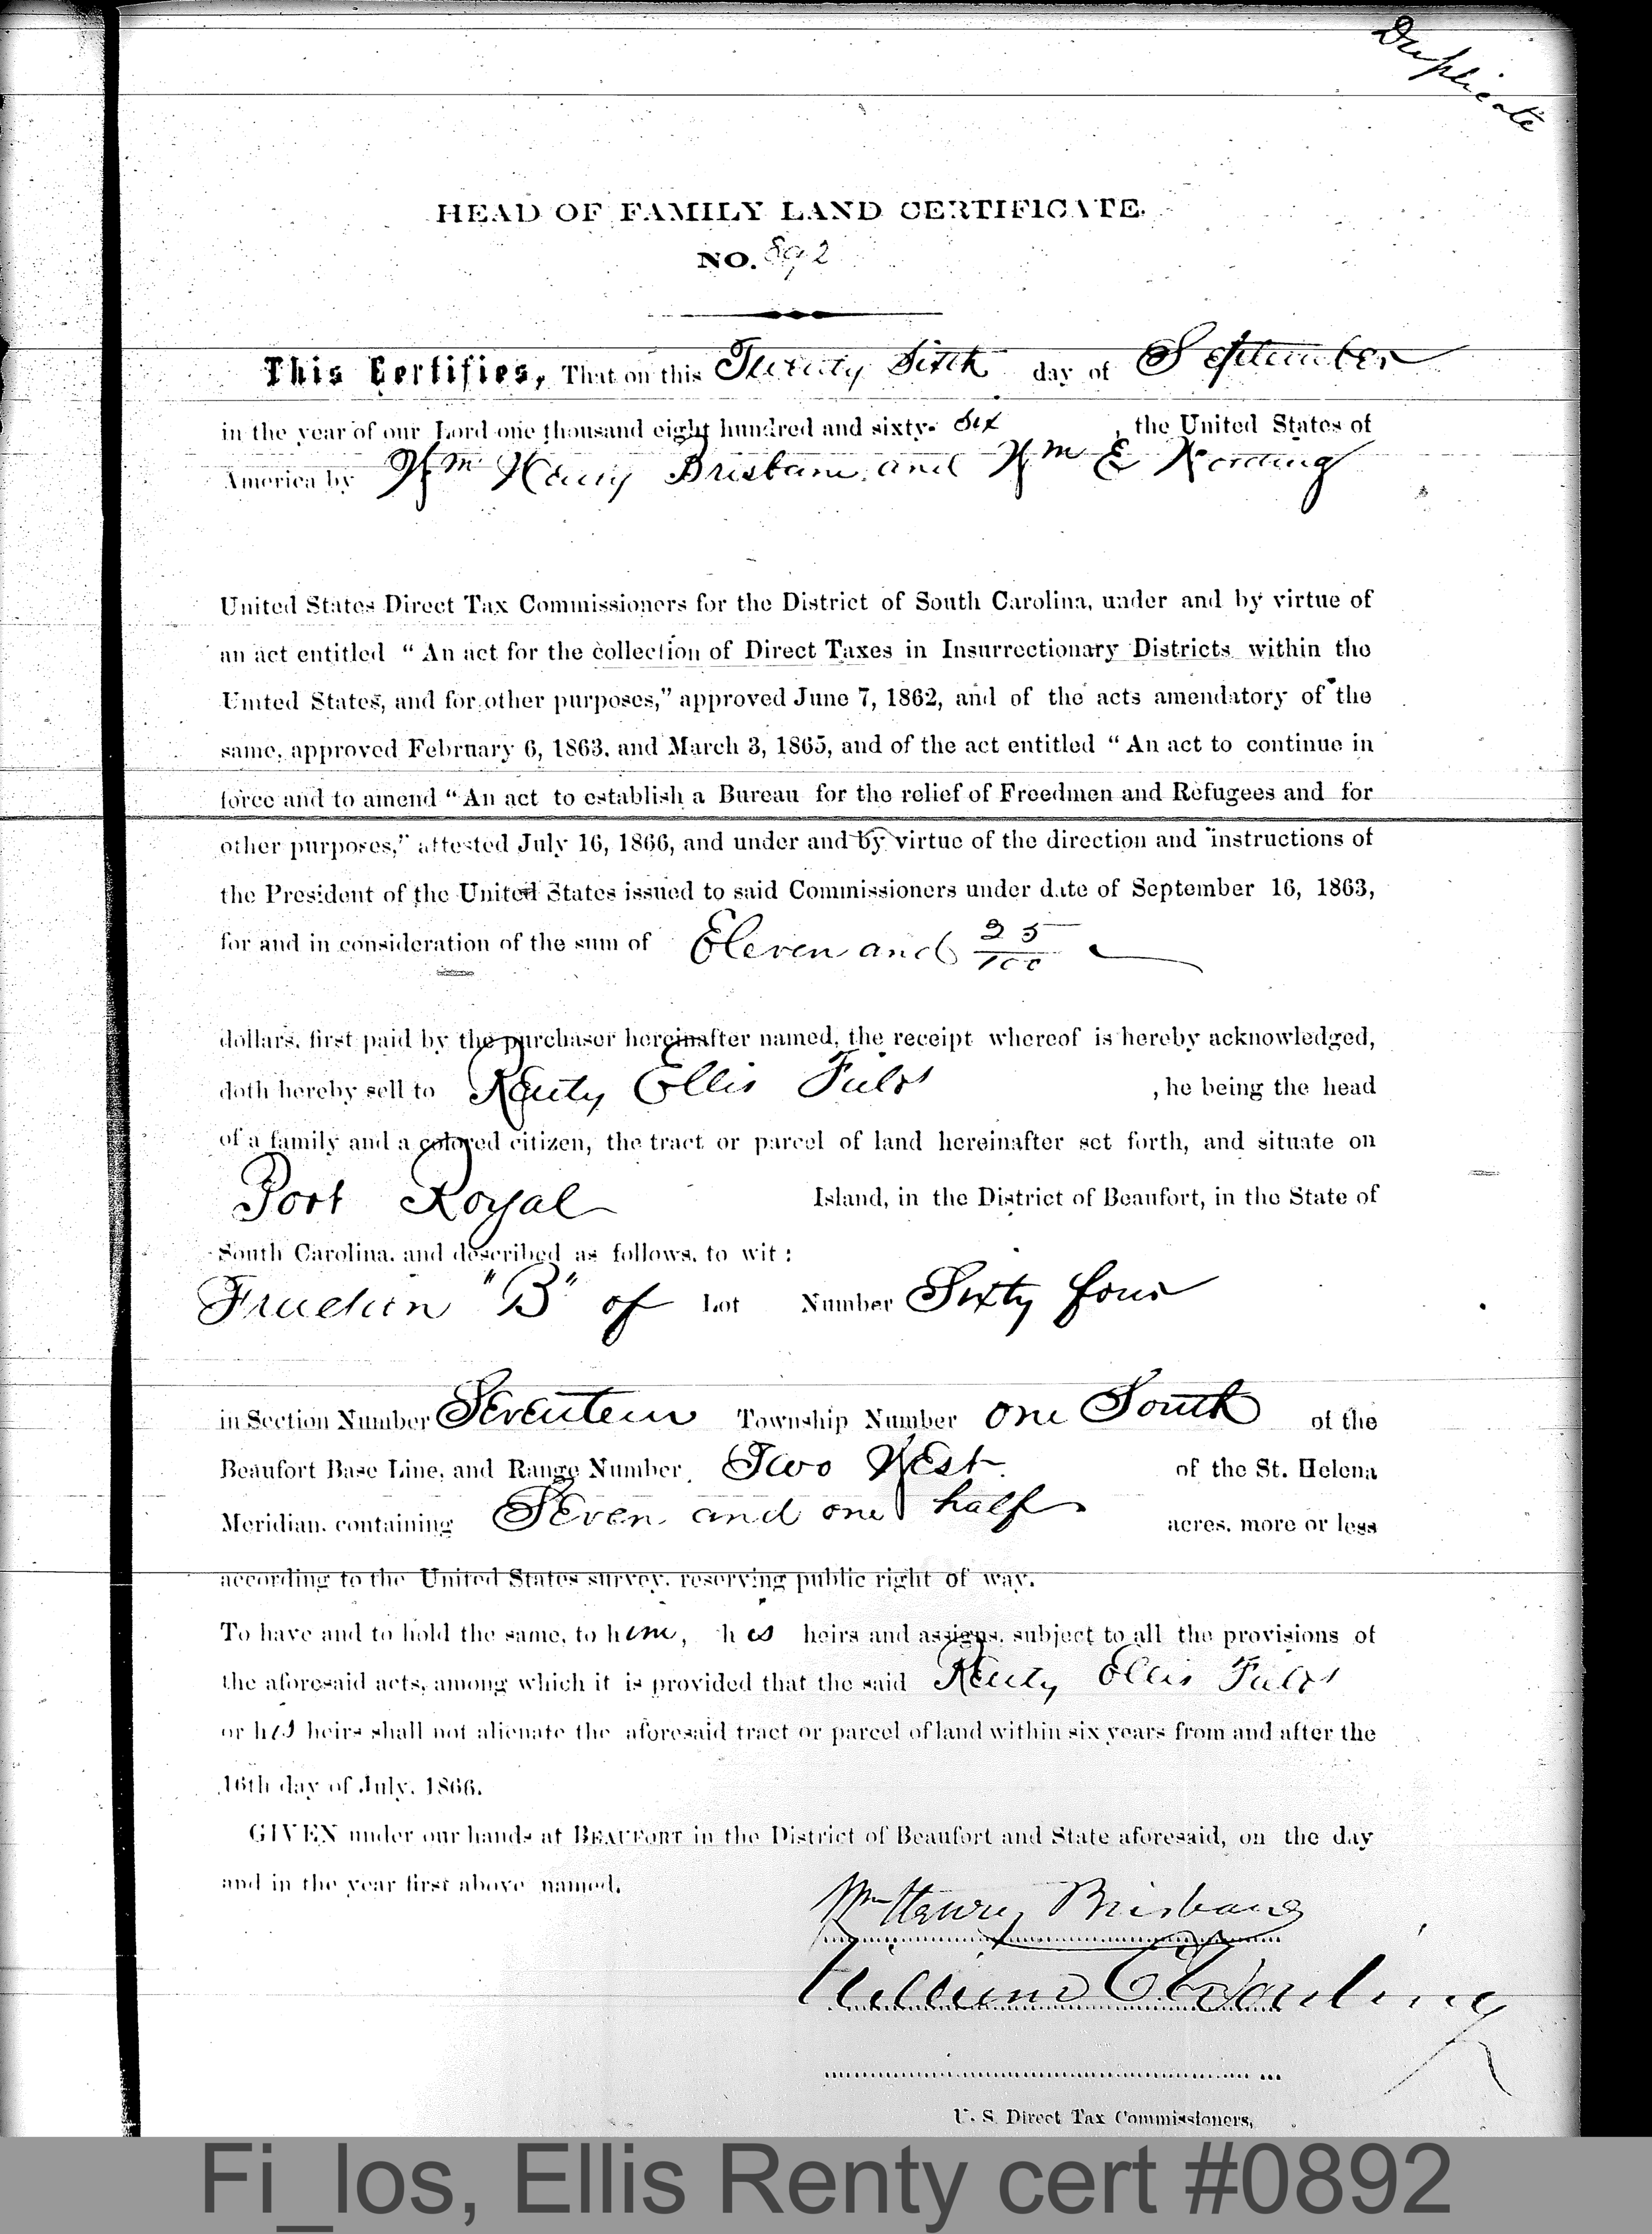 Duplicate
HEAD OF FAMILY LAND CERTIFICATE.
NO. 892
This Certifies, That on this Twenty Sixth day of September
in the year of our Lord one thousand eight hundred and sixty- six , the United States of
America by Wm Henry Brisbane and Wm E Wording
United States Direct Tax Commissioners for the District of South Carolina, under and by virtue of
an act entitled “ An act for the collection of Direct Taxes in Insurrectionary Districts within the
United States, and for other purposes,” approved June 7, 1862, and of the acts amendatory of the
same, approved February 6, 1863, and March 3, 1865, and of the act entitled “ An act to continue in
force and to amend “ An act to establish a Bureau for the relief of Freedmen and Refugees and for
other purposes,” attested July 16, 1866, and under and by virtue of the direction and instructions of
the President of the United States issued to said Commissioners under date of September 16, 1863,
for and in consideration of the sum of Eleven and 25/100
dollars, first paid by the purchaser hereinafter named, the receipt whereof is hereby acknowledged,
doth hereby sell to Renty Ellis , he being the head
of a family and a colored citizen, the tract or parcel of land hereinafter set forth, and situate on
Port Royal Island, in the District of Beaufort, in the State of
South Carolina, and described as follows, to wit :
Fraction "B" of Lot Number Sixty four
in Section Number Seventeen Township Number one South of the
Beaufort Base Line, and Range Number Two West of the St. Helena
Meridian, containing Seven and one half acres, more or less
according to the United States survey, reserving public right of way.
To have and to hold the same, to him, his heirs and assigns, subject to all the provisions of
the aforesaid acts, among which it is provided that the said Renty Ellis
or his heirs shall not alienate the aforesaid tract or parcel of land within six years from and after the
16th day of July, 1866.
GIVEN under our hands at BEAUFORT in the District of Beaufort and State aforesaid, on the day
and in the year first above named.
Wm Henry Brisbane
William E Wording
U. S. Direct Tax Commissioners,
Fi_los, Ellis Renty cert #0892